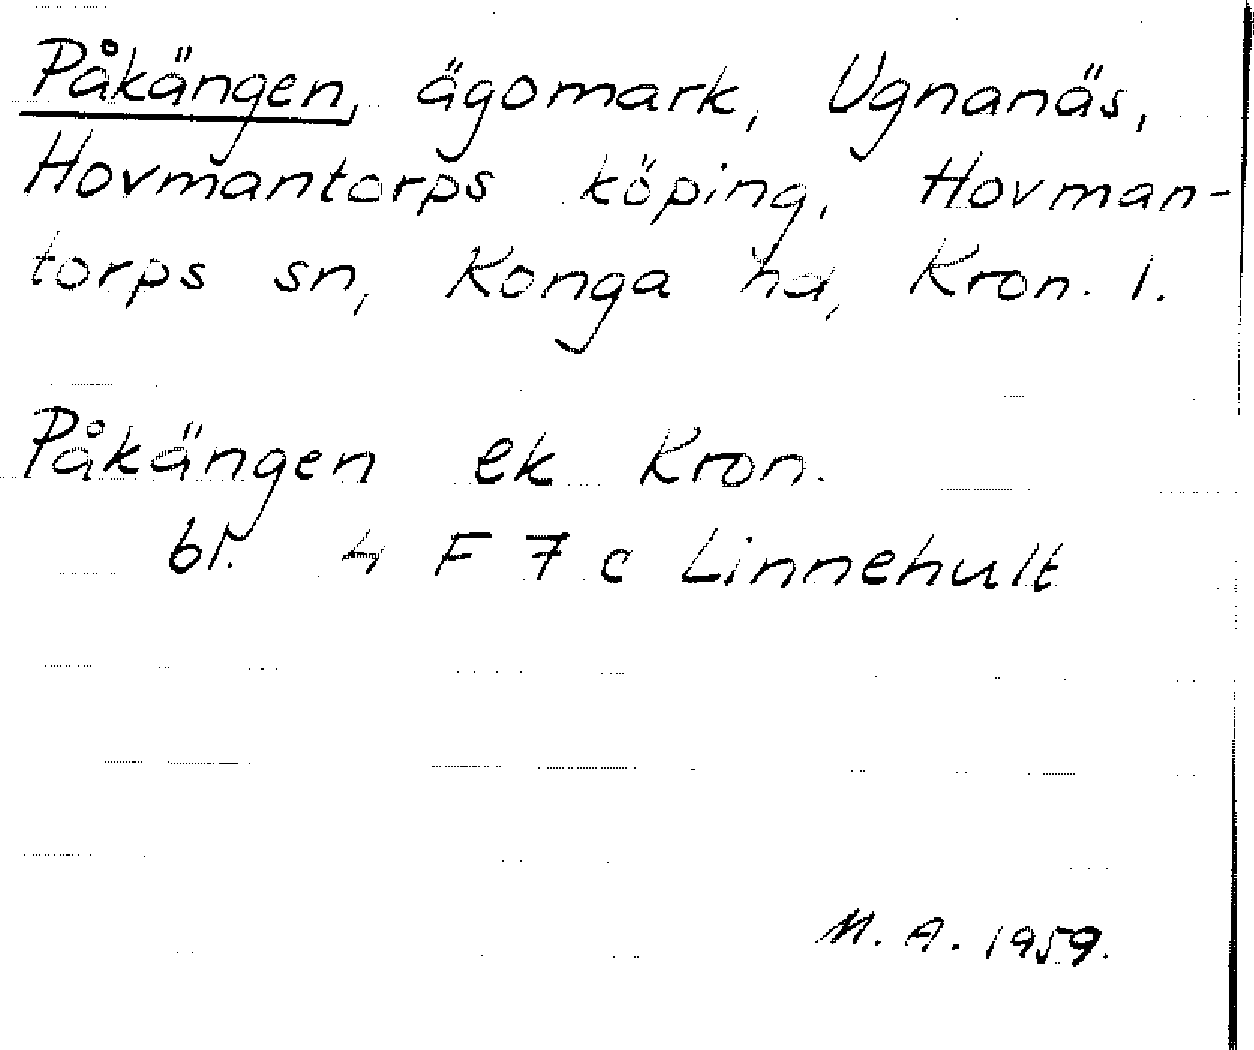 Påkängen, ägomark, Ugnanäs,
Hovmantorps köping, Hovman-
torps sn, Konga hd, Kron. l.
Påkängen ek Kron.
bl. 4 F 7 c Linnehult
M. A. 1959.